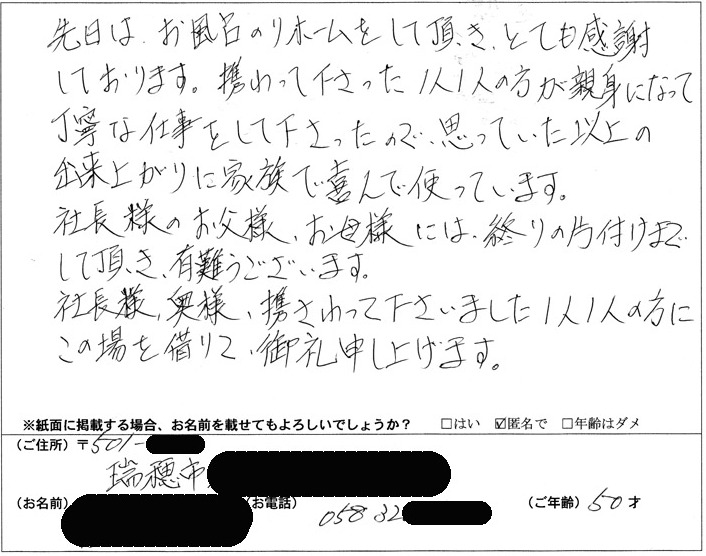 先日は、お風呂のリホームをして頂き、とても感謝
しております。携わって下さった1人1人の方が親身になって
丁寧な仕事をして下さったので、思っていた以上の
出来上がりに家族で喜んで使っています。
社長様のお父様、お母様には、終りの片付けまで
して頂き、有難うございます。
社長様、奥様、携さわって下さいました1人1人の方に
この場を借りて、御礼申し上げます。
※紙面に掲載する場合、お名前を載せてもよろしいでしょうか？ □はい ☑匿名で □年齢はダメ
(ご住所) 〒501-
瑞穂市
(お名前) (お電話) 058 32 (ご年齢) 50才